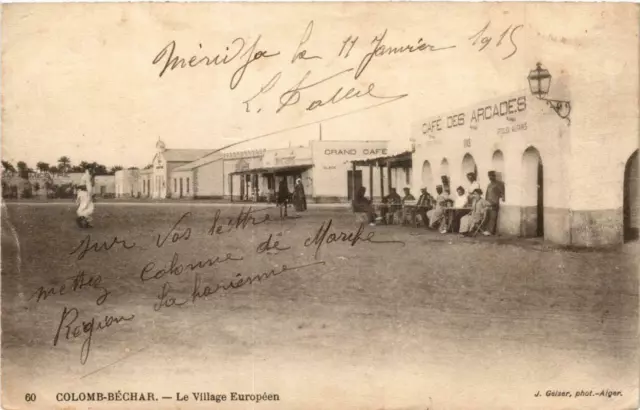 Méridja le 11 Janvier 1915
L. Fallie
GRAND CAFÉ
CAFÉ DES ARCADES
Sur vos lettre
mettez Colonne de Marche
Région Saharienne
60 COLOMB-BÉCHAR. — Le Village Européen
J. Geiser, phot.-Alger.